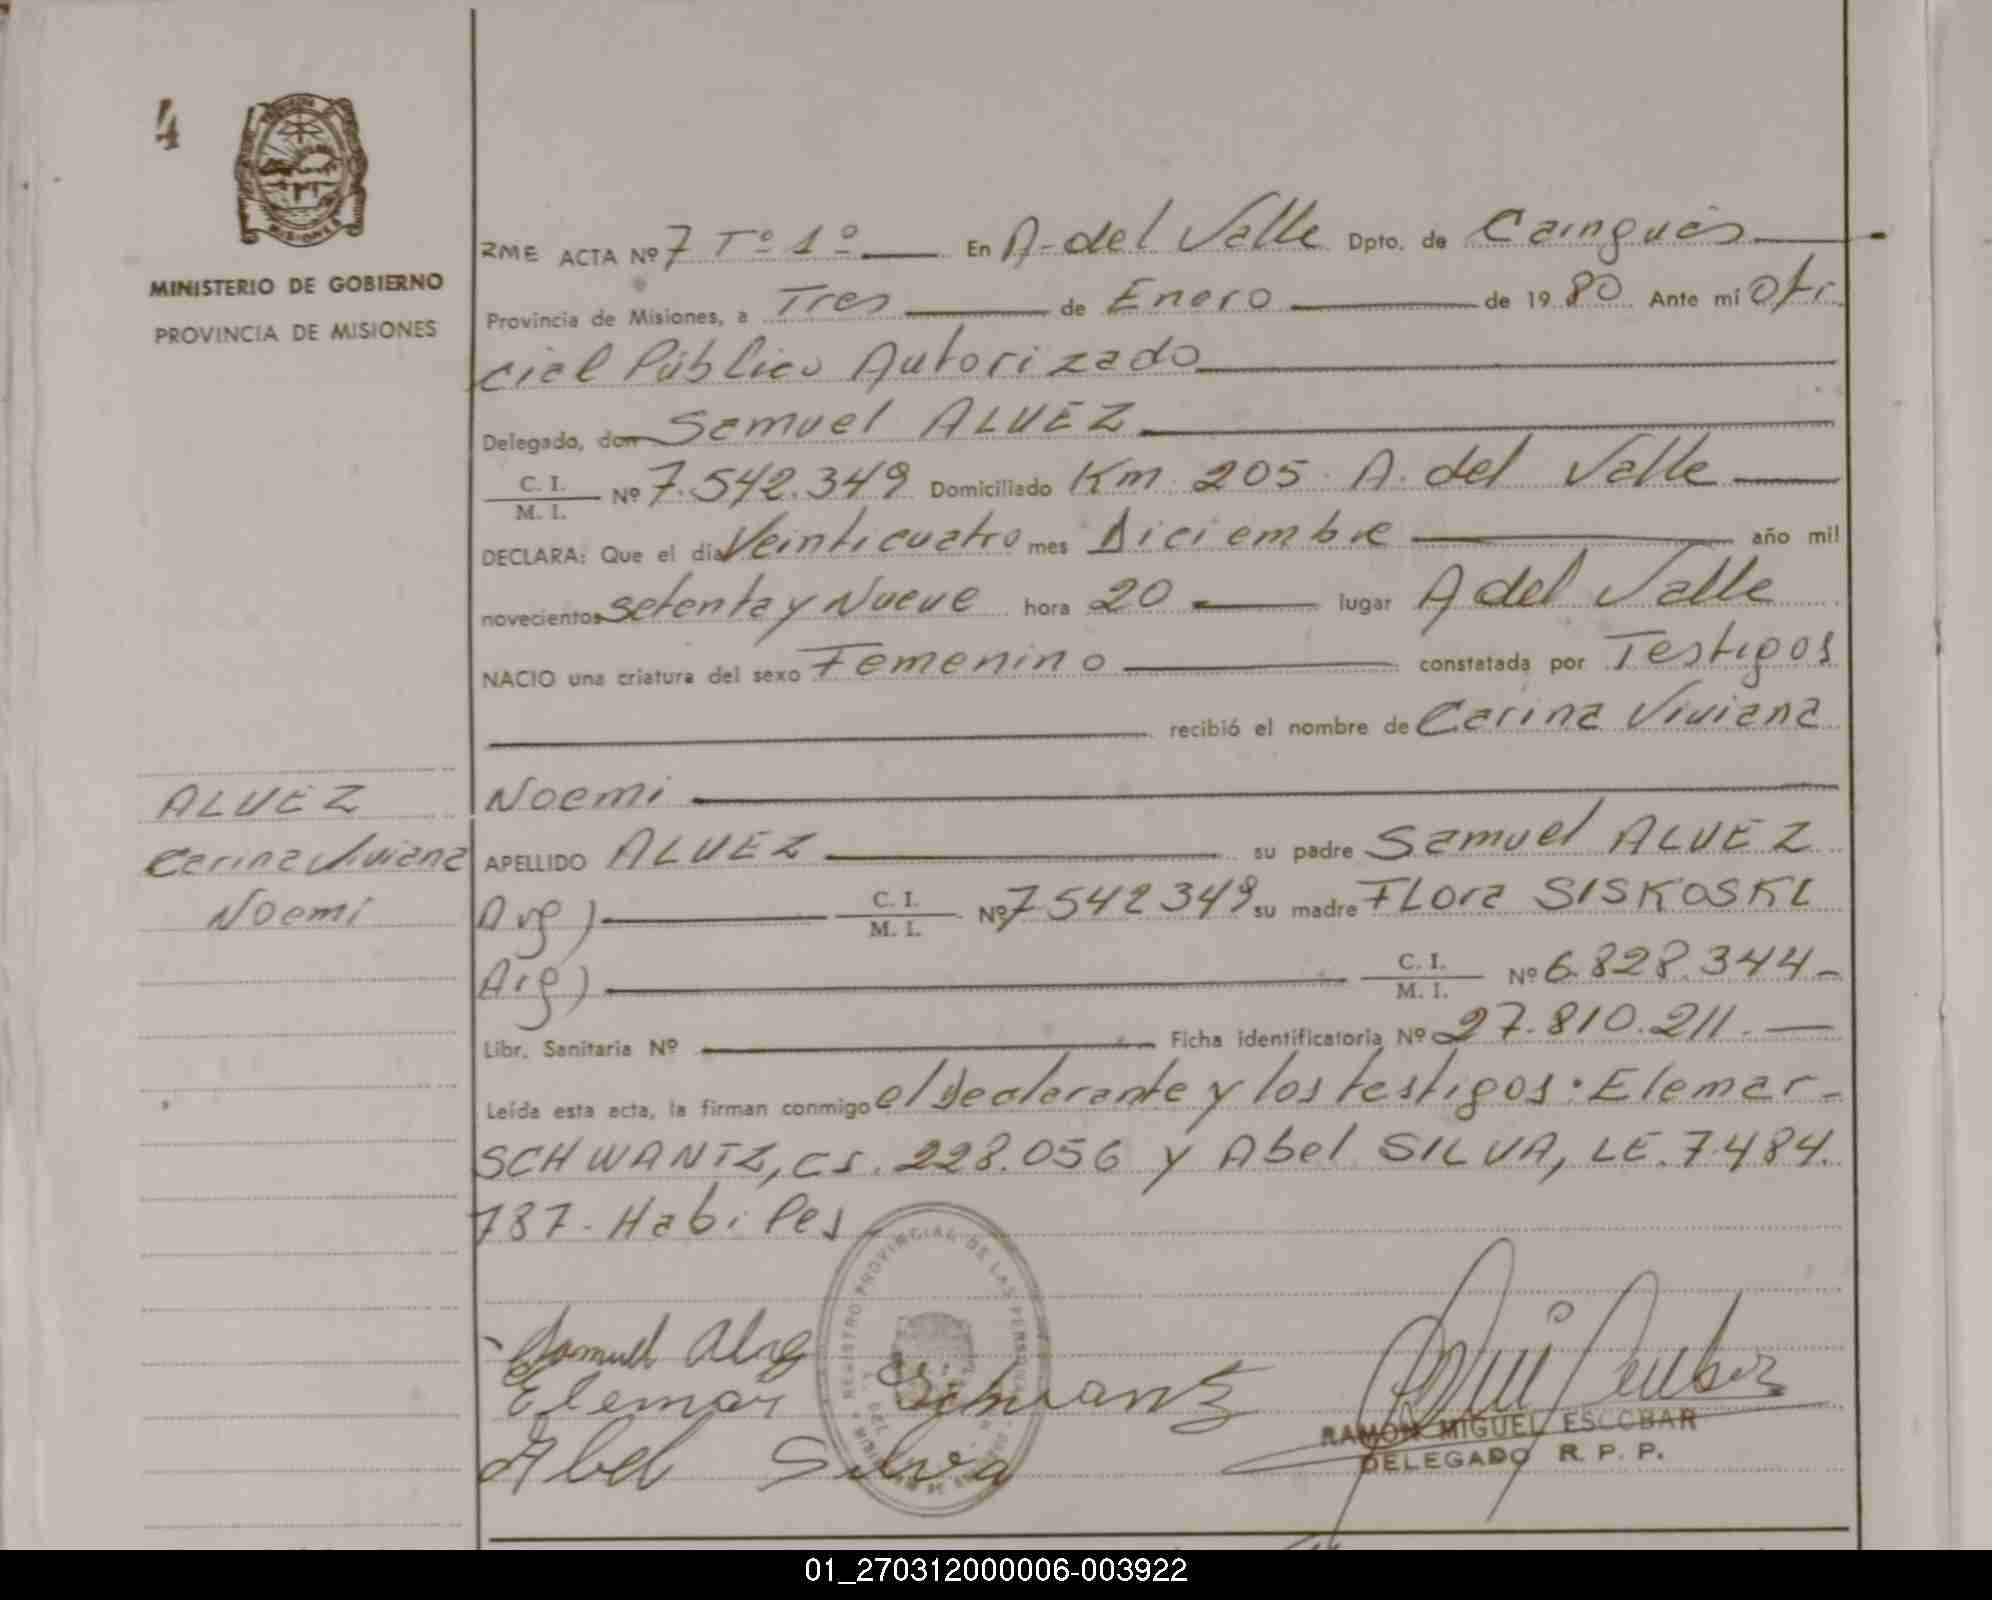 4
MINISTERIO DE GOBIERNO
PROVINCIA DE MISIONES
RME ACTA Nº 7 Tº 1º En A. del Valle Dpto. de Cainguás
Provincia de Misiones, a Tres de Enero de 1980 Ante mí Ofi
cial Público Autorizado
Delegado, don Samuel ALVEZ
C. I.
M. I. Nº 7.542.349 Domiciliado Km 205 A. del Valle
DECLARA: Que el día Veinticuatro mes Diciembre año mil
novecientos setenta y Nueve hora 20 lugar A del Valle
NACIO una criatura del sexo Femenino constatada por Testigos
recibió el nombre de Carina Viviana
Noemi
APELLIDO ALVEZ su padre Samuel ALVEZ
Arg) C. I.
M. I. Nº 7542349 su madre FLora SISKOSKI
Arg) C. I.
M. I. Nº 6.828.344-
Libr. Sanitaria Nº Ficha identificatoria Nº 27.810.211.
Leída esta acta, la firman conmigo el Declarante y los testigos: Elemar
SCHWANTZ, CI. 228.056 y Abel SILVA, LE. 7.484.
787. Habiles
ALVEZ
Carina Viviana
Noemi
Samuel Alvez
Elemar Schwantz
Abel Silva
REGISTRO PROVINCIAL DE LAS PERSONAS
RAMON MIGUEL ESCOBAR
DELEGADO R. P. P.
01_270312000006-003922